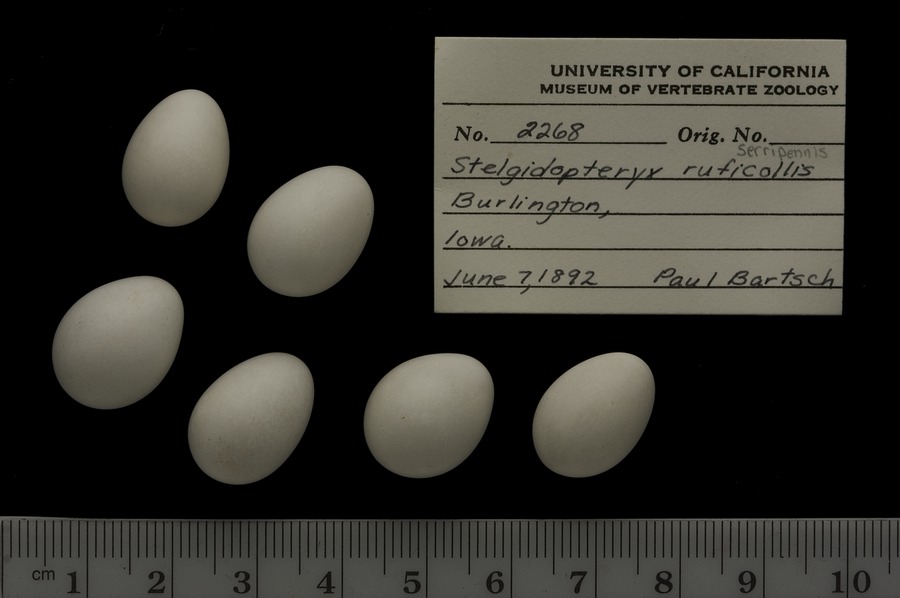 UNIVERSITY OF CALIFORNIA
MUSEUM OF VERTEBRATE ZOOLOGY
No. 2268 Orig. No.
serripennis
Stelgidopteryx ruficollis
Burlington,
Iowa.
June 7, 1892 Paul Bartsch
cm 1 2 3 4 5 6 7 8 9 10